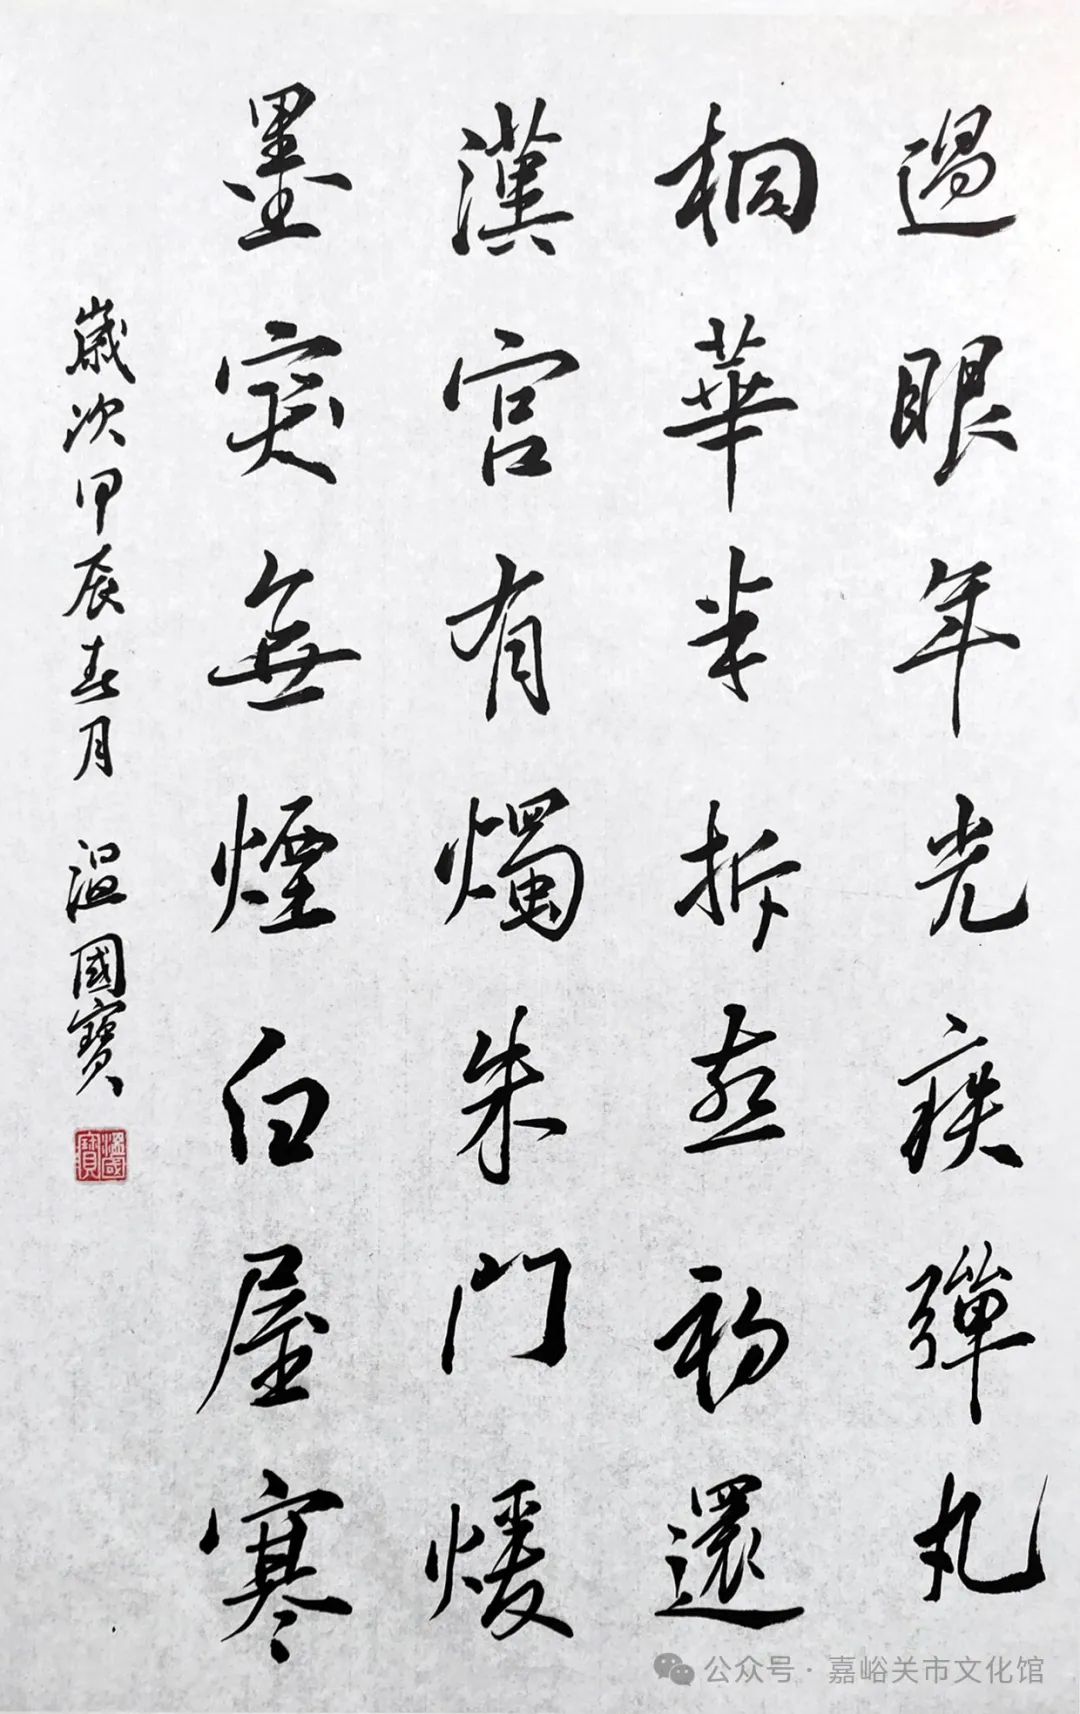 過眼年光疾彈丸
桐華半拆燕初還
漢宮有燭朱門煖
墨突無煙白屋寒
歲次甲辰春月 温國寶
溫國寶
公众号·嘉峪关市文化馆